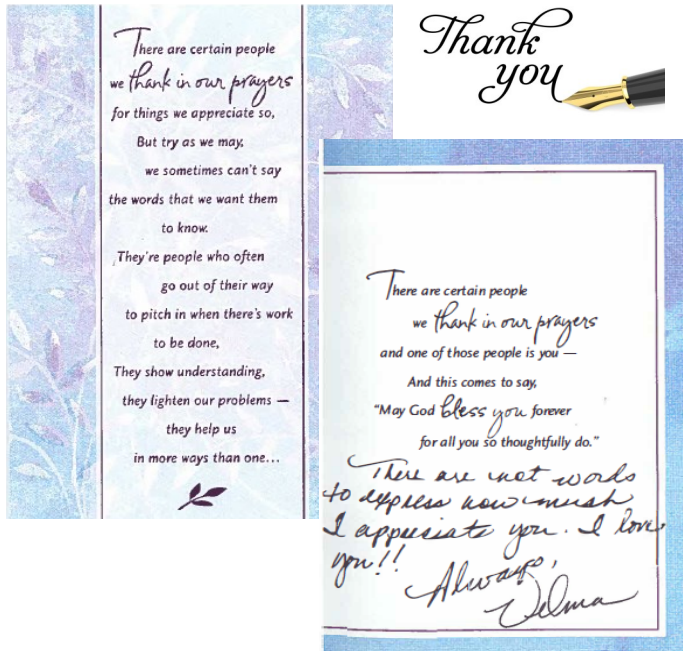 There are certain people
we thank in our prayers
for things we appreciate so,
But try as we may,
we sometimes can't say
the words that we want them
to know.
They're people who often
go out of their way
to pitch in when there's work
to be done,
They show understanding,
they lighten our problems —
they help us
in more ways than one...
Thank
you
There are certain people
we thank in our prayers
and one of those people is you —
And this comes to say,
"May God bless you forever
for all you so thoughtfully do."
There are not words
to express how much
I appreciate you. I love
you!!
Always,
Velma